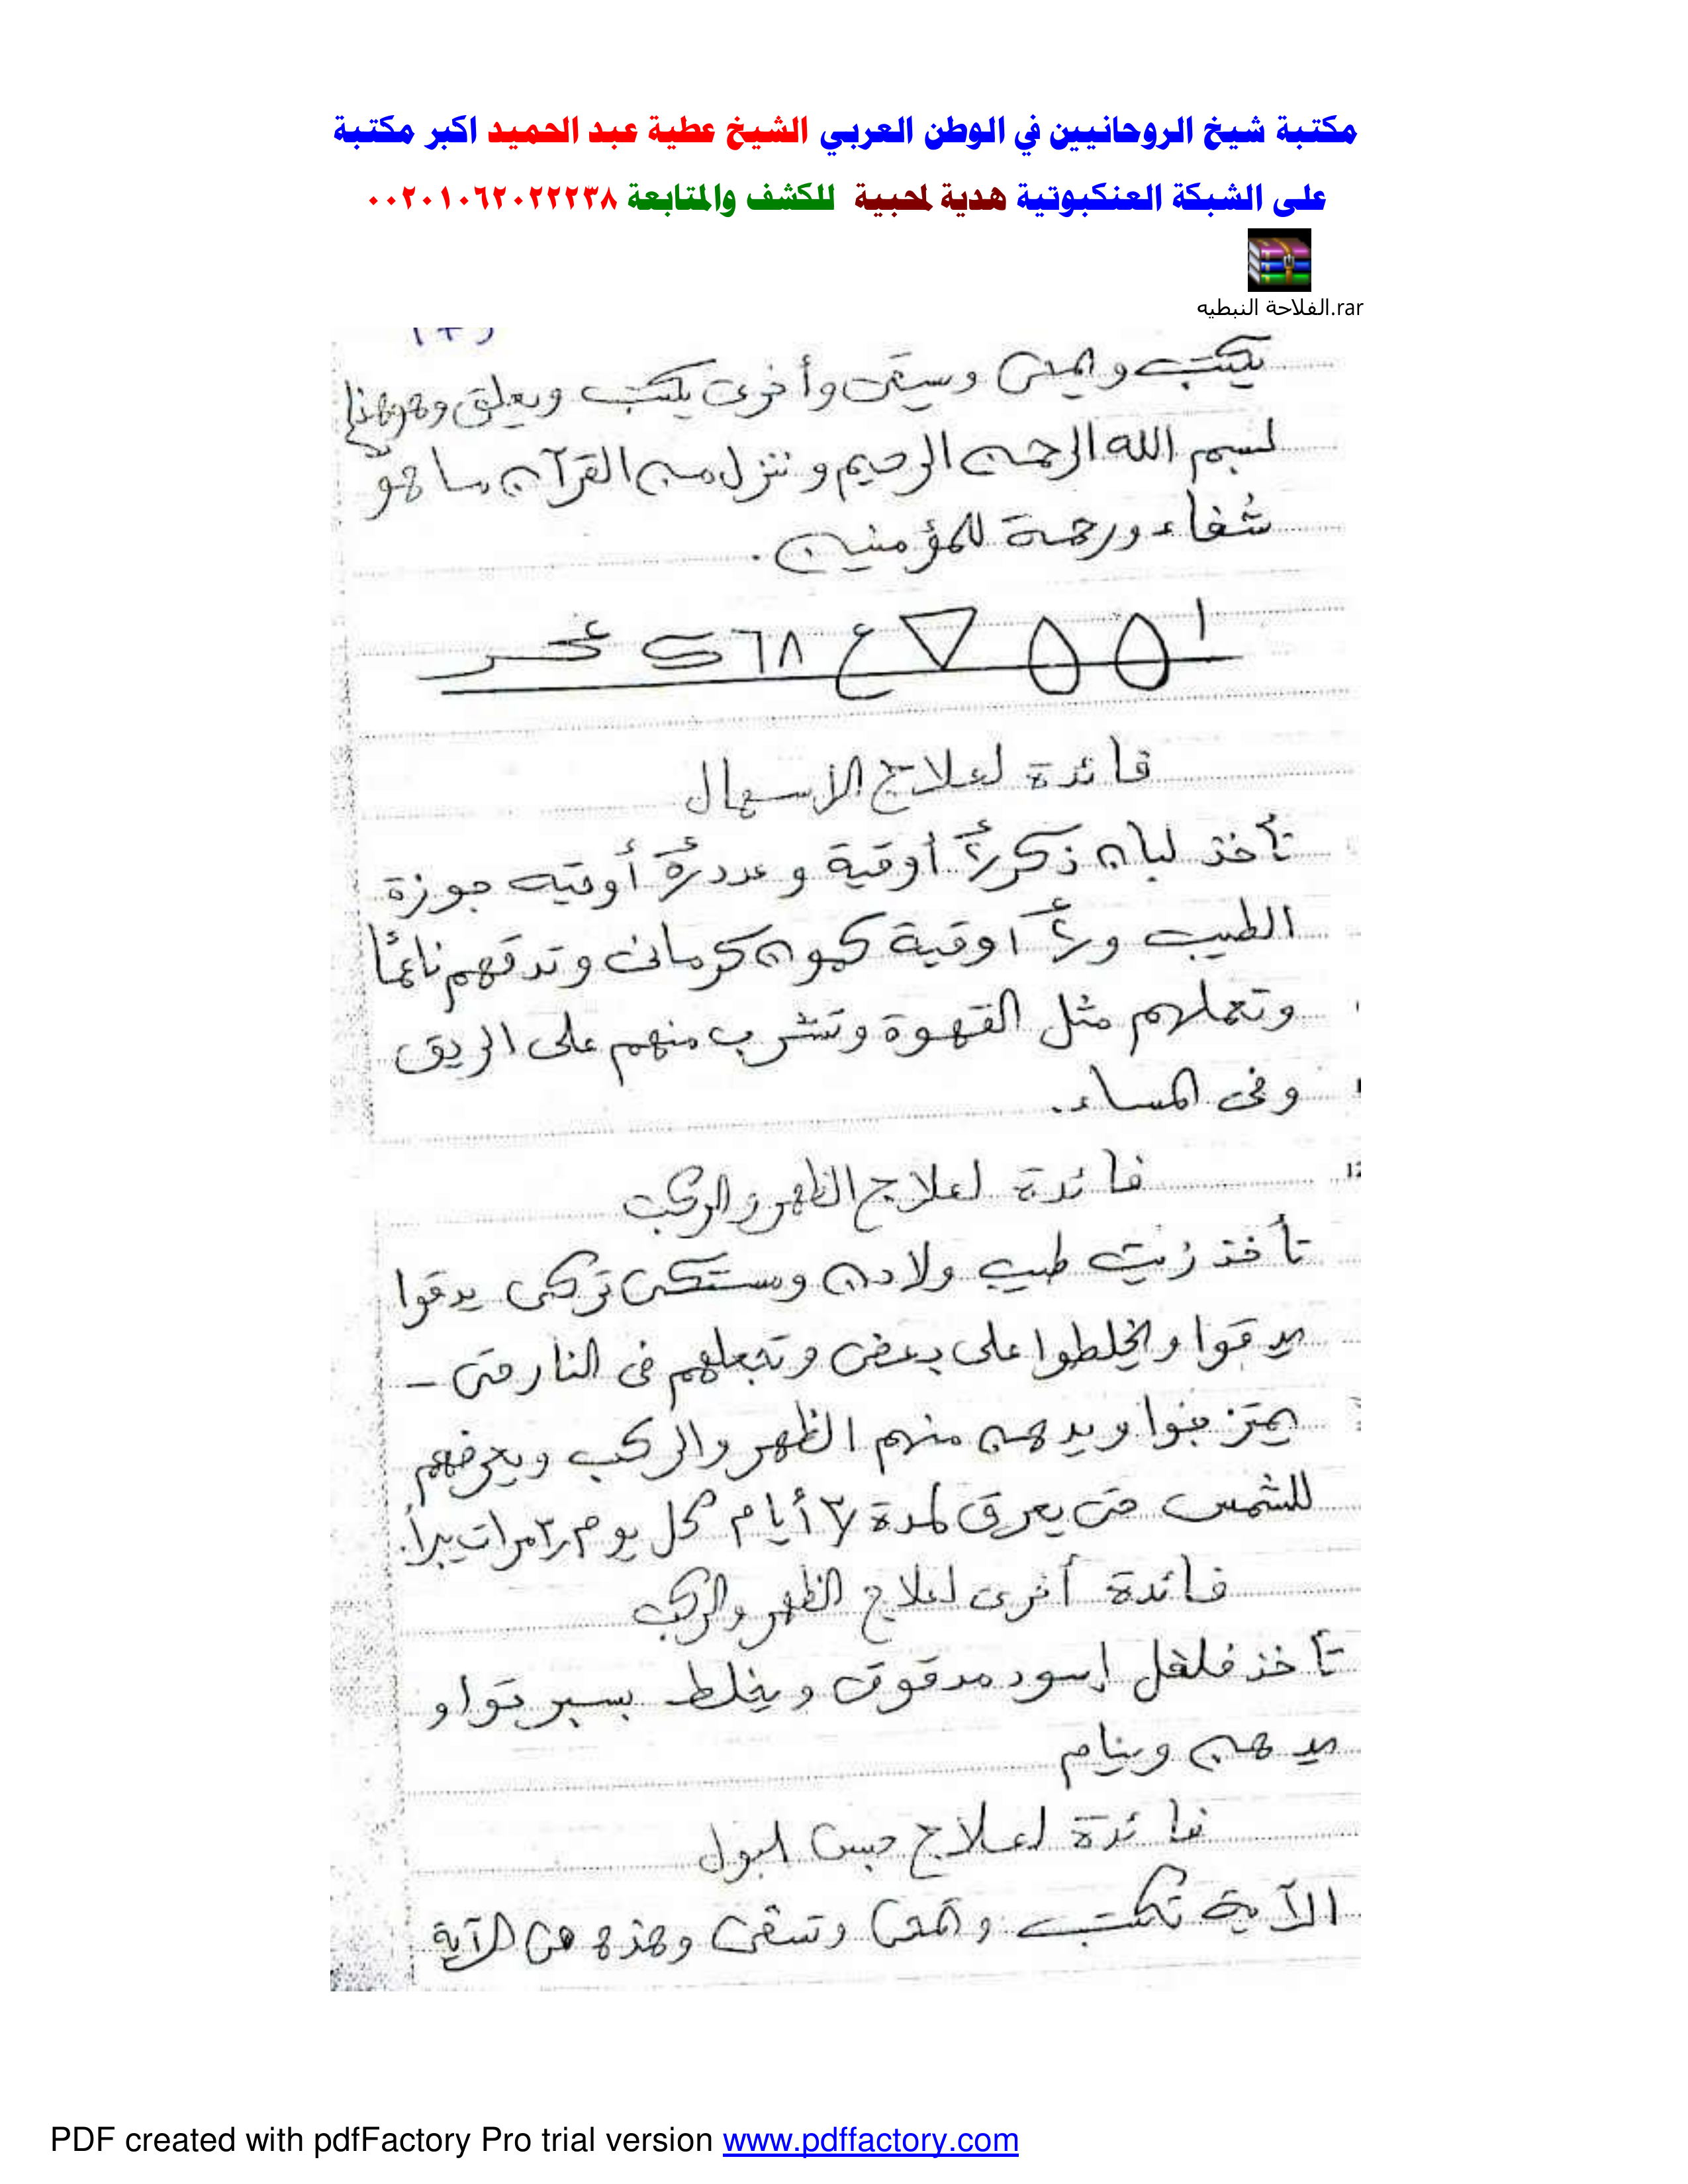 مكتبة شيخ الروحانيين في الوطن العربي الشيخ عطية عبد الحميد اكبر مكتبة
على الشبكة العنكبوتية هدية لمحبية للكشف والمتابعة ٠٠٢٠١٠٦٢٠٢٢٢٣٨
الفلاحة النبطيه.rar
يكتب ويمحى ويسقى وأخرى يكتب ويعلق وهو هذا
بسم الله الرحمن الرحيم وننزل من القرآن ما هو
شفاء ورحمة للمؤمنين .
فائدة لعلاج الاسهال
تأخذ لبان ذكر أوقية وعدد أوقيه جوزة
الطيب و اوقية كمون كرمانى وتدقهم ناعمًا
وتعملهم مثل القهوة وتشرب منهم على الريق
وفى المساء .
فائدة لعلاج الظهر والركب
تأخذ زيت طيب ولادن ومستكى تركى يدقوا
يدقوا ويخلطوا على بعض وتجعلهم فى النار حتى -
يمتزجوا ويدهن منهم الظهر والركب ويعرضهم
للشمس حتى يعرق لمدة ٧ أيام كل يوم ٣ مرات يبرأ .
فائدة أخرى لعلاج الظهر والركب
تأخذ فلفل إسود مدقوق ويخلط بسبرتوا و
يدهن وينام
فائدة لعلاج حبس البول
الآية تكتب وتمحى وتسقى وهذه هى الآية
PDF created with pdfFactory Pro trial version www.pdffactory.com